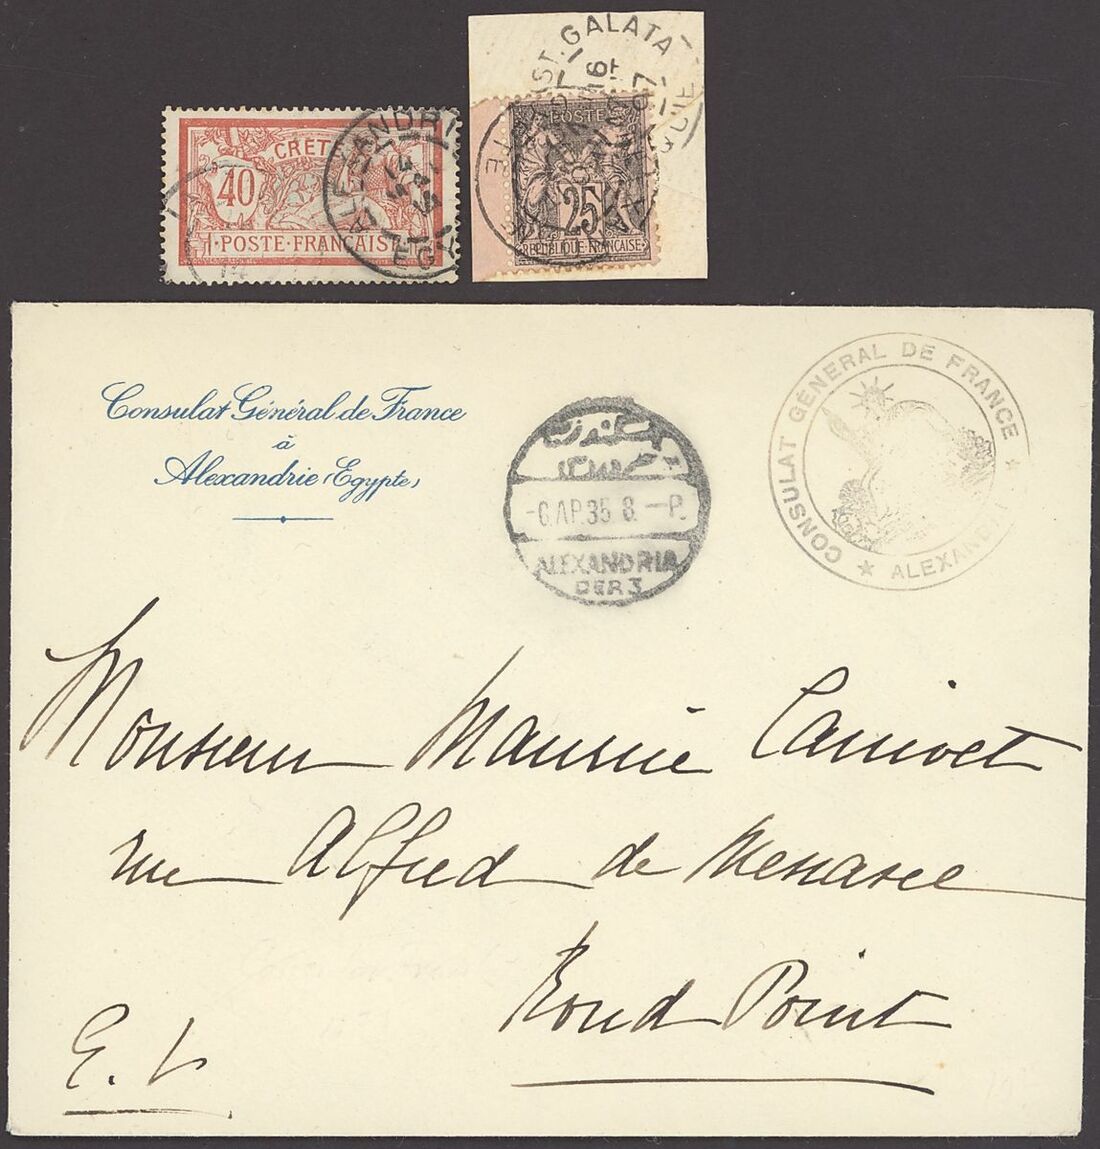 CRÈTE
40
POSTE FRANÇAISE
ALEXANDRI
14
POSTE
25
REPUBLIQUE FRANCAISE
GALATA
Consulat Général de France
à
Alexandrie (Egypte)
-6.AP.35 8.-P.
ALEXANDRIA
DER 3
CONSULAT GÉNÉRAL DE FRANCE
★ ALEXANDRI
Monsieur Maurice Canivet
rue Alfred de Menasce
Rond Point
E. V.